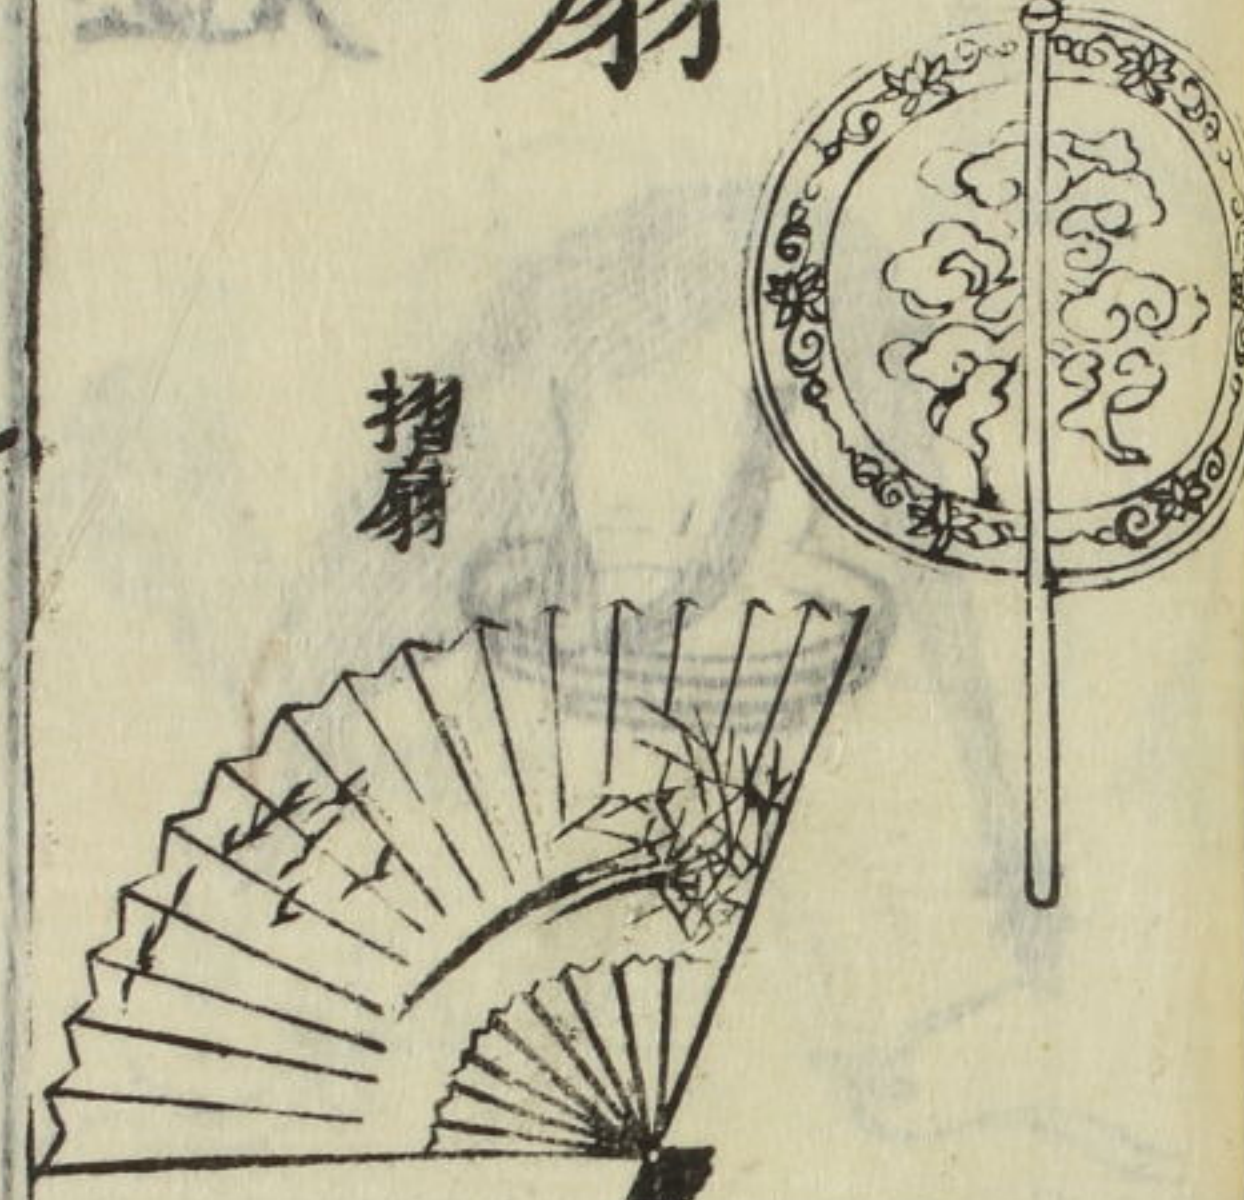 扇
摺扇